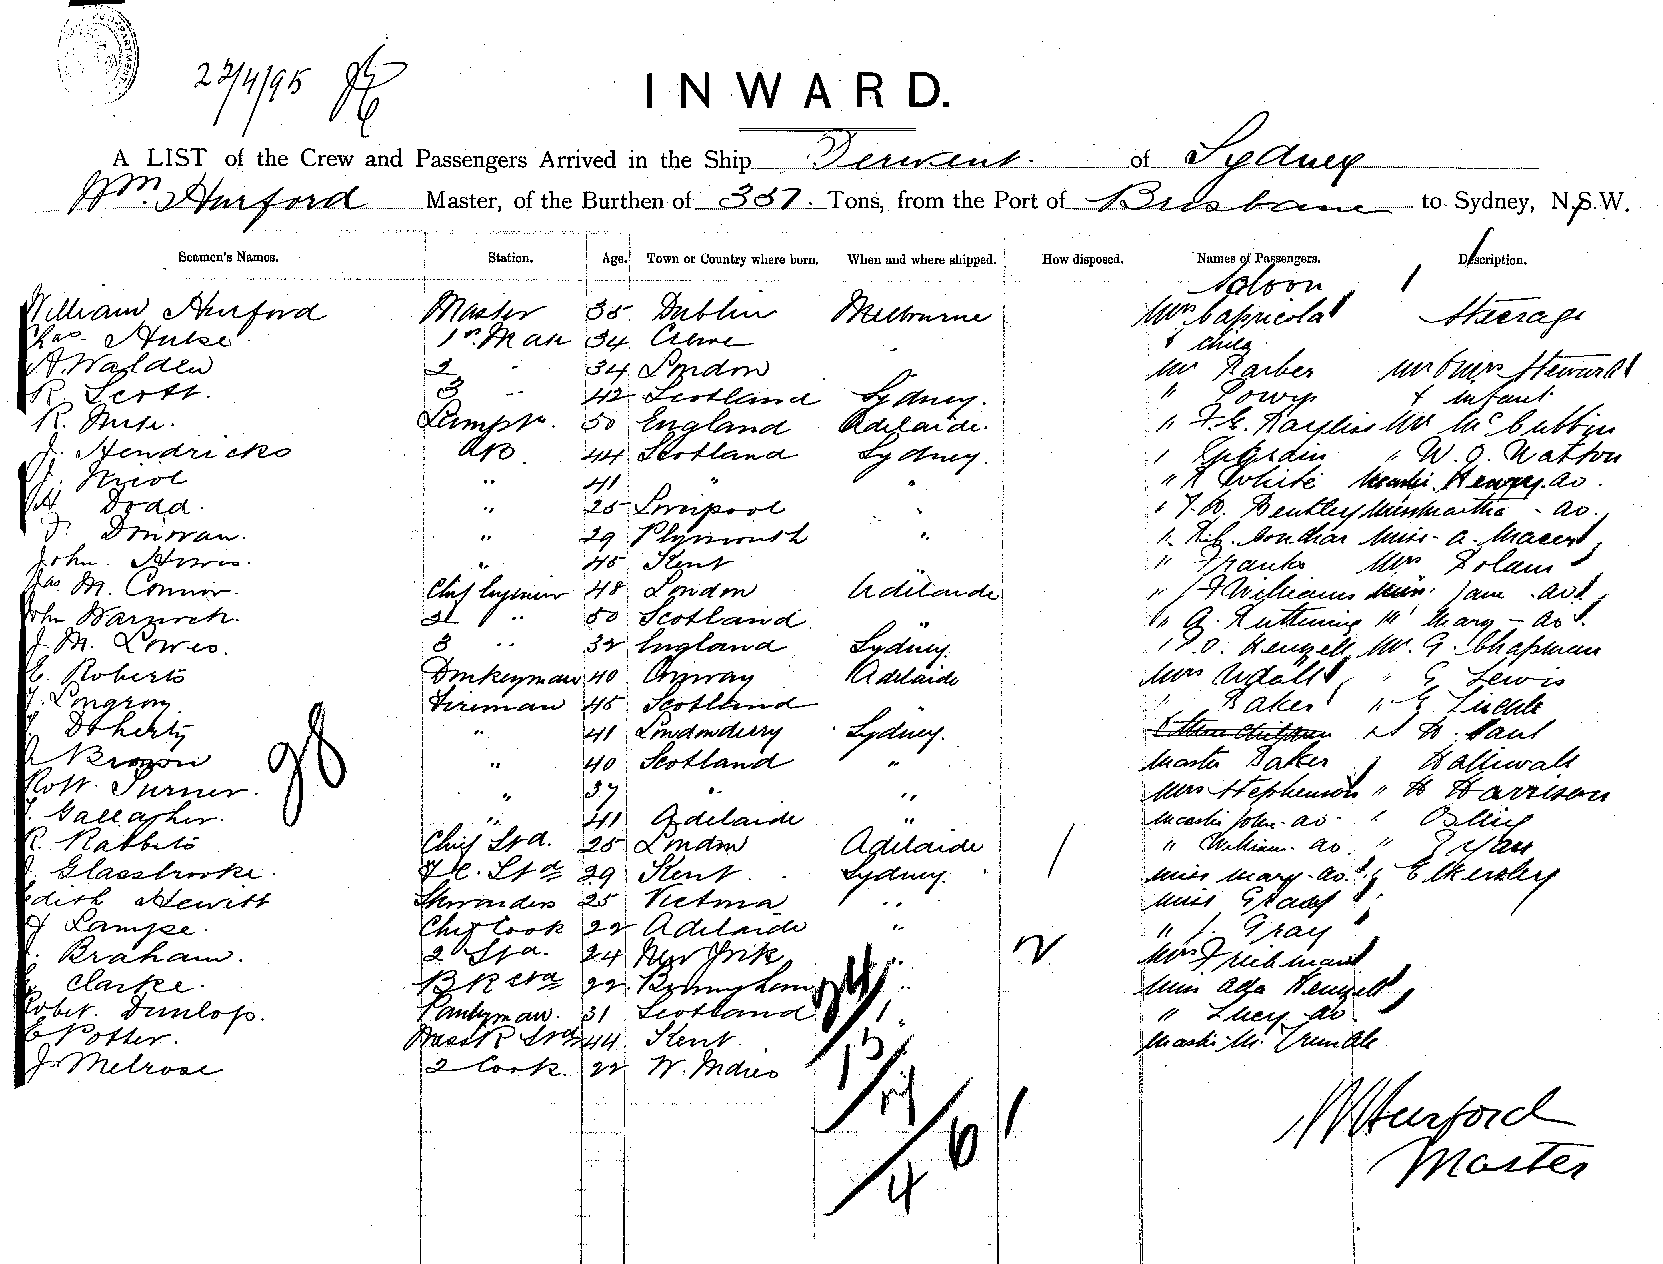 22/4/95
INWARD.
A LIST of the Crew and Passengers Arrived in the Ship Derwent of Sydney
Wm. Hurford Master, of the Burthen of 337. Tons, from the Port of Brisbane to Sydney, N.S.W.
Seamen's Names. Station. Age. Town or Country where born. When and where shipped. How disposed. Names of Passengers. Description.
Saloon
William Hurford Master 35 Dublin Melbourne Mrs Capricola Steerage
Chas. Hulse 1st Mate 34 Crewe & child
A. Walden 2 " 34 London Mr Barber Mr & Mrs Steward
R. Scott. 3 " 42 Scotland Sydney. " & infant
R. Muse. Lampt. 50 England Adelaide. " F. G. Mr McCubbin
J. Hendricks AB. 44 Scotland Sydney. " " W. J. Watson
J. Nicol " 41 " " " R White Master Henry do.
Dodd. " 25 Liverpool " " F. B. Bentley Miss Martha - do.
F. Donovan. " 29 Plymouth " " Miss A.
John Howis. " 45 Kent " Franks Mrs Dolan
Jas M. Connor. Chief Engineer 48 London Adelaide " J Williams Miss Jane do
John Warnock. 2 " 50 Scotland " " A. " Mary - do.
J. M. Lowes. 3 " 32 England Sydney. " Mr. G. Chapman
E. Roberts Donkeyman 40 Conway Adelaide Mrs Udall " G Lewis
J. Longroy Fireman 45 Scotland " " Baker " G
Doherty " 41 Londonderry Sydney. " H. Paul
A Brown " 40 Scotland " Master Baker Halliwall
Robt. Turner. " 37 " " Mrs Stephenson " H Harrison
T. Gallagher. " 41 Adelaide " Master John do. "
R. Rabbets Chief Std. 25 London Adelaide " William do. " Ryan
J. Glassbrooke. F.C. Std 29 Kent Sydney. Miss Mary do. Elkersley
Edith Hewitt Stewardess 25 Victoria " Miss Grady
H Lampe. Chief Cook 22 Adelaide " " J. Gray
J. Braham. 2 Std. 24 New York " Mrs Friedman
Clarke. B R Std 22 Birmingham " Miss Ada
Robet. Dunlop. Pantryman. 31 Scotland " " Lucy do
E Potter. Mess R Std 44 Kent Master M.
J. Melrose 2 Cook 22 W. Indies
98
2
24
13
nil
4
61
W Hurford
Master